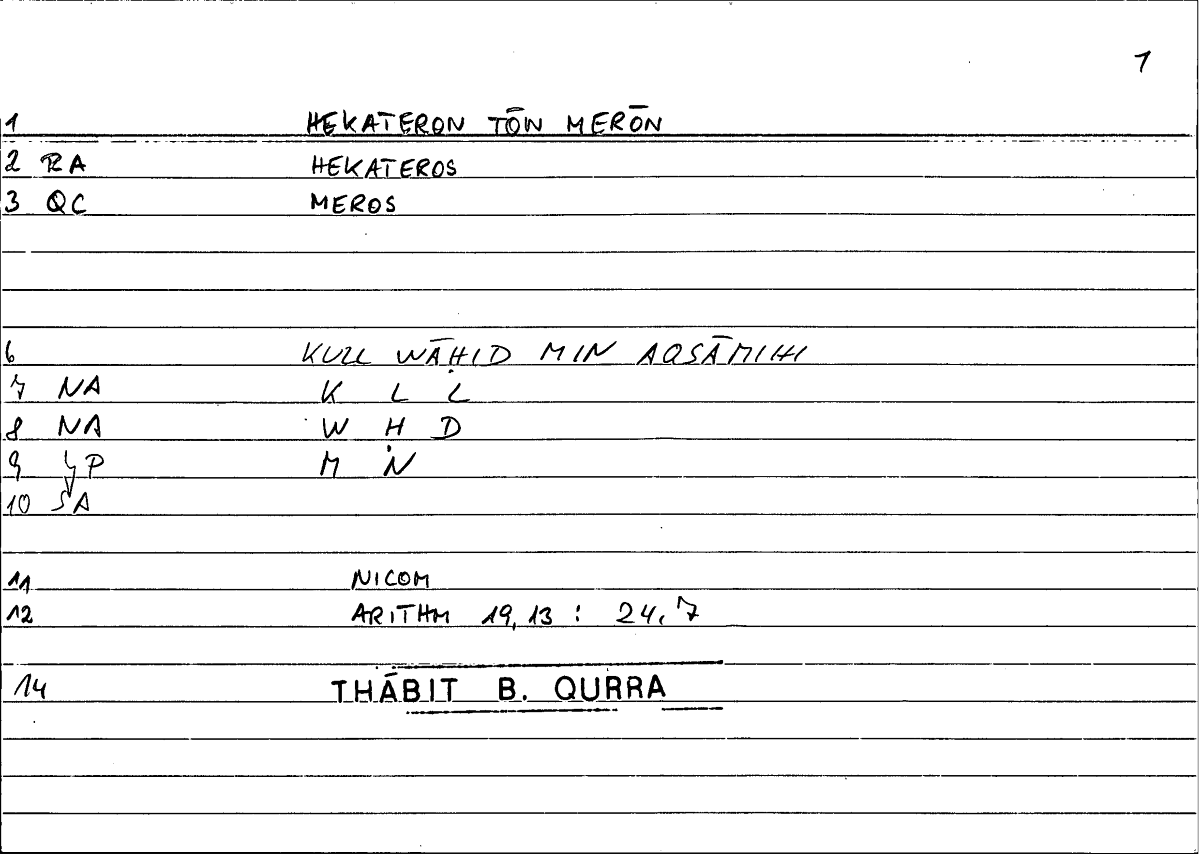 1
1 HEKATERON TŌN MERŌN
2 RA HEKATEROS
3 QC MEROS
6 KULL WĀḤID MIN AQSĀMIHI
7 NA K L L
8 NA W Ḥ D
9 P M N
10 SA
11 NICOM
12 ARITHM 19,13 : 24,7
14 THĀBIT B. QURRA